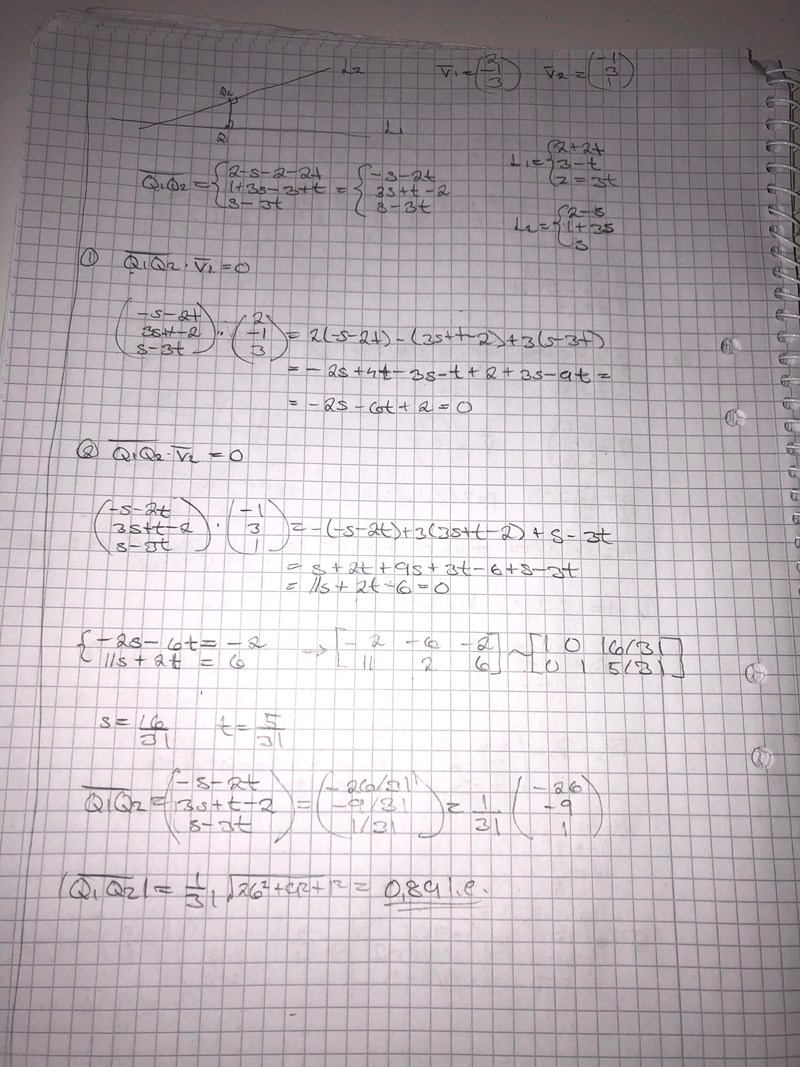 L2 V̅1 = (2 -1 3) V̅2 = (-1 3 1)
Q2
L1
Q1
L1 = {2+2t
3-t
z = 3t
Q1Q2 = {2-s-2-2t = {-s-2t
1+3s-3+t 3s+t-2
s-3t s-3t
L2 = {2-s
1+3s
s
① Q1Q2 · V̅1 = 0
(-s-2t 3s+t-2 s-3t) · (2 -1 3) = 2(-s-2t) - (3s+t-2) + 3(s-3t)
= -2s+4t-3s-t+2+3s-9t =
= -2s-6t+2 = 0
② Q1Q2 · V̅2 = 0
(-s-2t 3s+t-2 s-3t) · (-1 3 1) = -(-s-2t)+3(3s+t-2)+s-3t
= s+2t+9s+3t-6+s-3t
= 11s+2t-6 = 0
{-2s-6t = -2 → [-2 -6 -2 ~ [1 0 16/31
11s+2t = 6 11 2 6] 0 1 5/31]
s = 16/31 t = 5/31
Q1Q2 = (-s-2t 3s+t-2 s-3t) = (-26/31 -9/31 1/31) = 1/31 (-26 -9 1)
|Q1Q2| = 1/31 √26²+9²+1² = 0,89 l.e.